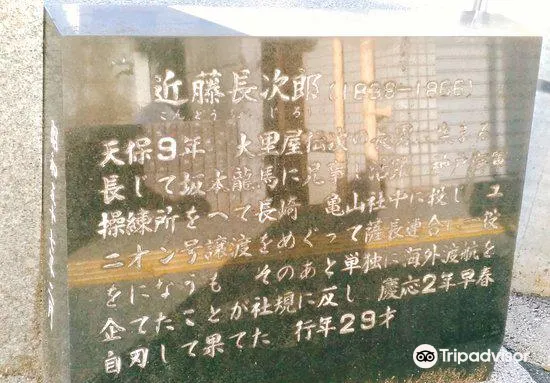 近藤長次郎(1838-1866)
こんどう ちょうじろう
天保9年 大里屋伝次の長男に生まる
長じて坂本龍馬に兄事し活躍 神戸海軍
操練所をへて長崎 亀山社中に投じ ユ
ニオン号譲渡をめぐって薩長連合に一役
をになうも そのあと単独に海外渡航を
企てたことが社規に反し 慶応2年早春
自刃して果てた 行年29才
Tripadvisor